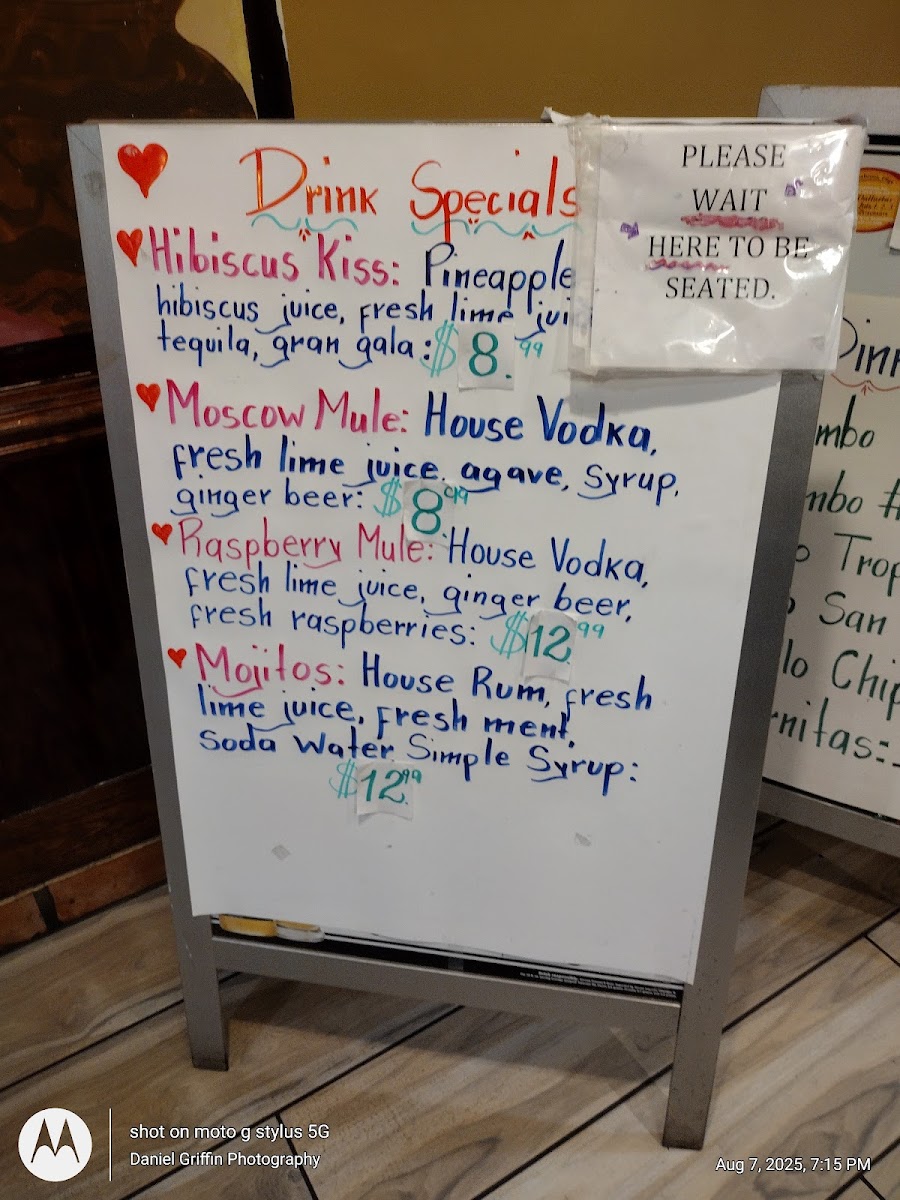 Drink Specials
Hibiscus Kiss: Pineapple
hibiscus juice, fresh lime jui
tequila, gran gala: $8.99
Moscow Mule: House Vodka,
fresh lime juice, agave, Syrup,
ginger beer: $8.99
Raspberry Mule: House Vodka,
fresh lime juice, ginger beer,
fresh raspberries: $12.99
Mojitos: House Rum, fresh
lime juice, fresh ment,
Soda Water Simple Syrup:
$12.99
PLEASE
WAIT
HERE TO BE
SEATED.
Dinn
mbo
mbo #
Trop
San
lo Chip
rnitas:
shot on moto g stylus 5G
Daniel Griffin Photography
Aug 7, 2025, 7:15 PM